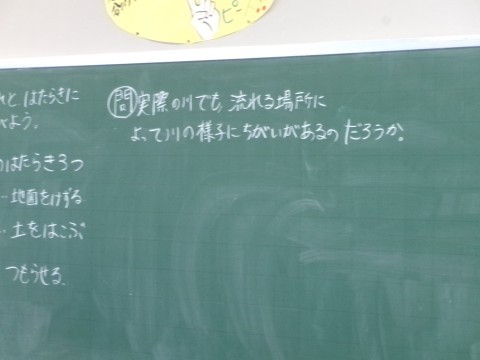 はたらきに
よう。
のはたらき3つ
‥地面をけずる
‥土をはこぶ
つもらせる。
問 実際の川でも、流れる場所に
よって川の様子にちがいがあるのだろうか。